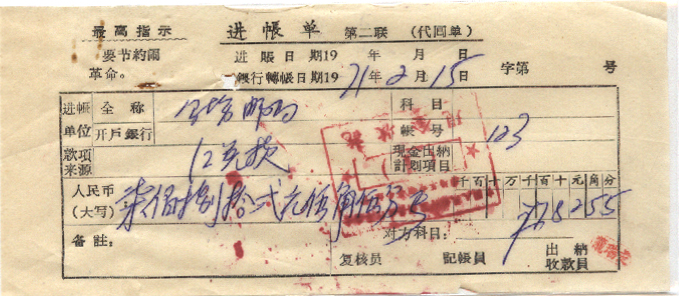 最高指示
要节約鬧
革命。
进帳单 第二联 (代回单)
进賬日期19 年 月 日
銀行轉帳日期19 71年2月15日
字第 号
进帳单位 全称 科目
开戶銀行 帳号 123
款項来源 汇兑款 現金出納計划項目
人民币(大写) 柒佰捌拾弍元伍角伍分 千百十万千百十元角分 78255
备註: 对方科目:
复核員 記帳員 出納收款員